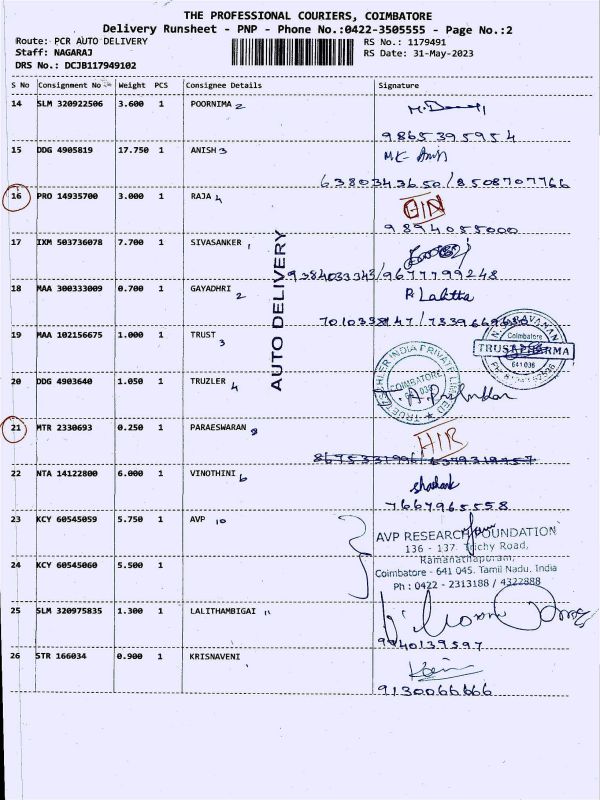 THE PROFESSIONAL COURIERS, COIMBATORE
Delivery Runsheet - PNP - Phone No.:0422-3505555 - Page No.:2
Route: PCR AUTO DELIVERY RS No.: 1179491
Staff: NAGARAJ RS Date: 31-May-2023
DRS No.: DCJB117949102
S No Consignment No Weight PCS Consignee Details Signature
14 SLM 320922506 3.600 1 POORNIMA 2
9865395954
15 DDG 4905819 17.750 1 ANISH 3
6380343650/8508707766
16 PRO 14935700 3.000 1 RAJA 4
9894055000
17 IXM 503736078 7.700 1 SIVASANKER 1
9384033343/9677799248
AUTO DELIVERY
18 MAA 300333009 0.700 1 GAYADHRI 2 R. Lalitha
19 MAA 102156675 1.000 1 TRUST 3
Coimbatore
TRUST PHARMA
641 036
20 DDG 4903640 1.050 1 TRUZLER 4
COIMBATORE
21 MTR 2330693 0.250 1 PARAESWARAN
22 NTA 14122800 6.000 1 VINOTHINI 6
7667965558
23 KCY 60545059 5.750 1 AVP 10
AVP RESEARCH FOUNDATION
136 - 137, Trichy Road,
Ramanathapuram,
24 KCY 60545060 5.500 1
Coimbatore - 641 045. Tamil Nadu. India
Ph : 0422 - 2313188 / 4322888
25 SLM 320975835 1.300 1 LALITHAMBIGAI 11
9940139597
26 STR 166034 0.900 1 KRISNAVENI
9130066666